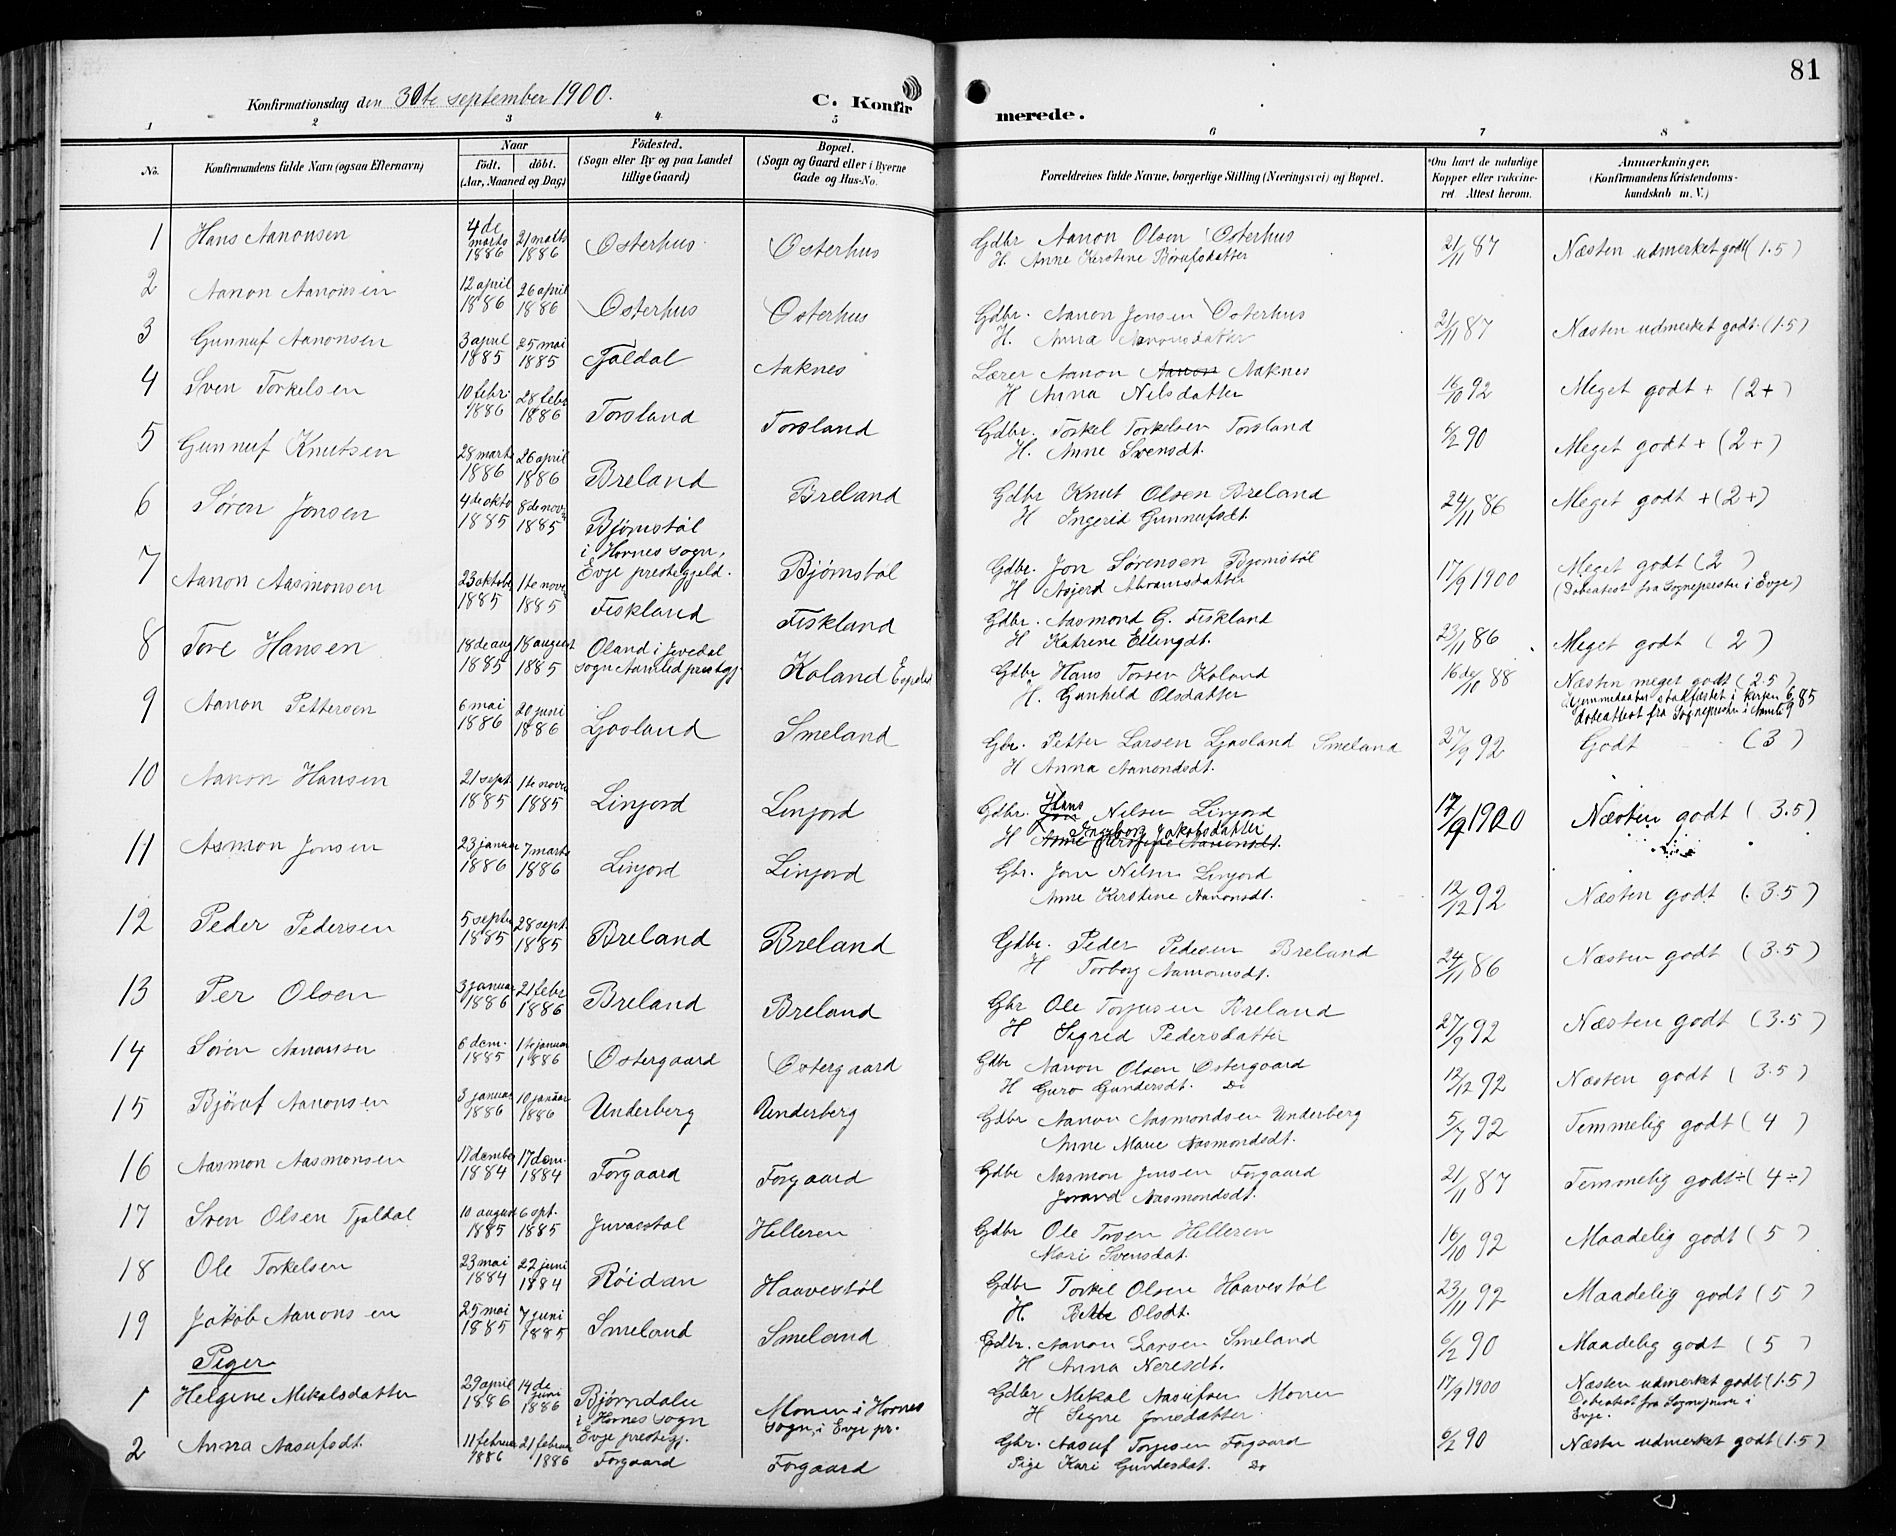 81
Konfirmationsdag den 30te september 1900.
C. Konfirmerede.
1 2 3 4 5 6 7 8
No.
Konfirmandens fulde Navn (ogsaa Efternavn)
Naar
födt. döbt.
(Aar, Maaned og Dag)
Födested.
(Sogn eller By og paa Landet
tillige Gaard)
Bopæl.
(Sogn og Gaard eller i Byerne
Gade og Hus-No.
Forældrenes fulde Navne, borgerlige Stilling (Næringsvei) og Bopæl.
Om havt de naturlige
Kopper eller vakcine-
ret Attest herom.
Anmærkninger.
(Konfirmandens Kristendoms-
kundskab m. V.)
1 Hans Aanonsen 4de marts 1886 21 marts 1886 Osterhus Osterhus Gdbr Aanon Olsen Osterhus 21/11 87 Næsten udmerket godt (1.5)
H. Anne Kirstine Børufsdatter
2 Aanon Aanonsen 12 april 1886 26 april 1886 Osterhus Osterhus Gdbr. Aanon Jensen Osterhus 21/11 87 Næsten udmerket godt (1.5)
H. Anna Aanonsdatter
3 Gunnuf Aanonsen 3 april 1885 25 mai 1885 Tjaldal Aaknes Lærer Aanon Aanon Aaknes 16/10 92 Meget godt + (2+)
H Anna Nilsdatter
4 Sven Torkelsen 10 febri 1886 28 febr 1886 Torsland Torsland Gdbr. Torkel Torkelsen Torsland 6/2 90 Meget godt + (2+)
H. Anne Svensdt.
5 Gunnuf Knutsen 28 marts 1886 26 april 1886 Breland Breland Gdbr Knut Olsen Breland 24/11 86 Meget godt + (2+)
H Ingerid Gunnufsdt.
6 Søren Jonsen 4de okto 1885 8de nov 1885 Bjørnstøl
i Hornes sogn,
Evje prestegjeld. Bjørnstøl Gdbr. Jon Sørensen Bjørnstøl 17/9 1900 Meget godt (2 )
H Asjerd Abramsdatter (Dobeatest fra Sogneprestn i Evje)
7 Aanon Aasmonsen 23 oktobe 1885 1te nove 1885 Fiskland Fiskland Gdbr. Aasmond G. Fiskland 23/11 86 Meget godt ( 2 )
H Katrine Ellingdt.
8 Tore Hansen 18de aug 1885 18 august 1885 Oland i Jevedal
sogn Aamlid prestgj Koland Gdbr Hans Torsen Koland 16de/10 88 Næsten meget godt (2.5)
H. Gunhild Olsdatter Hjemmedøbt stadfæstet i kirken 6/9 85
dobeattest fra Sogneprestn i Aamli
9 Aanon Pettersen 6 mai 1886 20 juni 1886 Ljosland Smeland Gbr. Petter Larsen Ljosland Smeland 27/9 92 Godt (3)
H Anna Aanondsdt.
10 Aanon Hansen 21 sept. 1885 1te novem 1885 Linjord Linjord Gdbr. Hans Nilsen Linjord 17/9 1900 Næsten godt (3.5)
H Ingeborg Jakobsdatter
11 Asmon Jonsen 23 januar 1886 7 marts 1886 Linjord Linjord Gbr. Jon Nilsen Linjord 12/12 92 Næsten godt (3.5)
Anne Kirstine Aanonsdt.
12 Peder Pedersen 5 septbr 1885 28 sept. 1885 Breland Breland Gdbr. Peder Pedesen Breland 24/11 86 Næsten godt (3.5)
H Torborg Aanonsdt.
13 Per Olsen 3 januar 1886 21 febr 1886 Breland Breland Gbr Ole Torjusen Breland 27/9 92 Næsten godt (3.5)
H Sigrid Pedersdatter
14 Søren Aanonsen 6 dem. 1885 1te januar 1886 Ostergaard Ostergaard Gdbr Aanon Olsen Ostergaard 12/12 92 Næsten godt (3.5)
H Guro Gundersdt. Do
15 Bjøruf Aanonsen 3 januar 1886 10 januar 1886 Underberg Underberg Gdbr Aanon Aasmondsen Underberg 5/7 92 Temmelig godt (4)
Anne Marie Aasmondsdt.
16 Aasmon Aasmonsen 17 dember 1884 17 dem. 1884 Forgaard Forgaard Gdbr Aasmon Jensen Forgaard 21/11 87 Temmelig godt÷ (4÷)
Jorand Aasmondsdt.
17 Sven Olsen Tjaldal 10 august 1885 6 spt. 1885 Juvasstøl Helleren Gdbr Ole Torsen Helleren 16/10 92 Maadelig godt (5 )
Mari Svensdat.
18 Ole Torkelsen 23 mai 1884 22 juni 1884 Røidan Haavestøl Gdbr Torkel Olsen Haavestøl 23/11 92 Maadelig godt (5)
H. Olsdt.
19 Jakob Aanonsen 25 mai 1885 7 juni 1885 Smeland Smeland Gdbr. Aanon Larsen Smeland 6/2 90 Maadelig godt (5 )
H Anna Neresdt.
Piger
1 Helgine Mikalsdatter 29 april 1886 14de juni 1886 Bjørndalen
i Hornes sogn
Evje prestegj. Monen i Hornes
sogn, i Evje pr. Gdbr Mikal Aasufsen Monen 17/9 1900 Næsten udmerket godt (1.5)
H Signe Jonsdatter Dobeatest fra Sogneprestn i
Evje.
2 Anna Aasufsdt. 11 februa 1886 21 februa 1886 Forgaard Forgaard Gbr. Aasuf Torjesen Forgaard 6/2 90 Næsten udmerket godt (1.5)
Pige Kari Gundesdat. Do